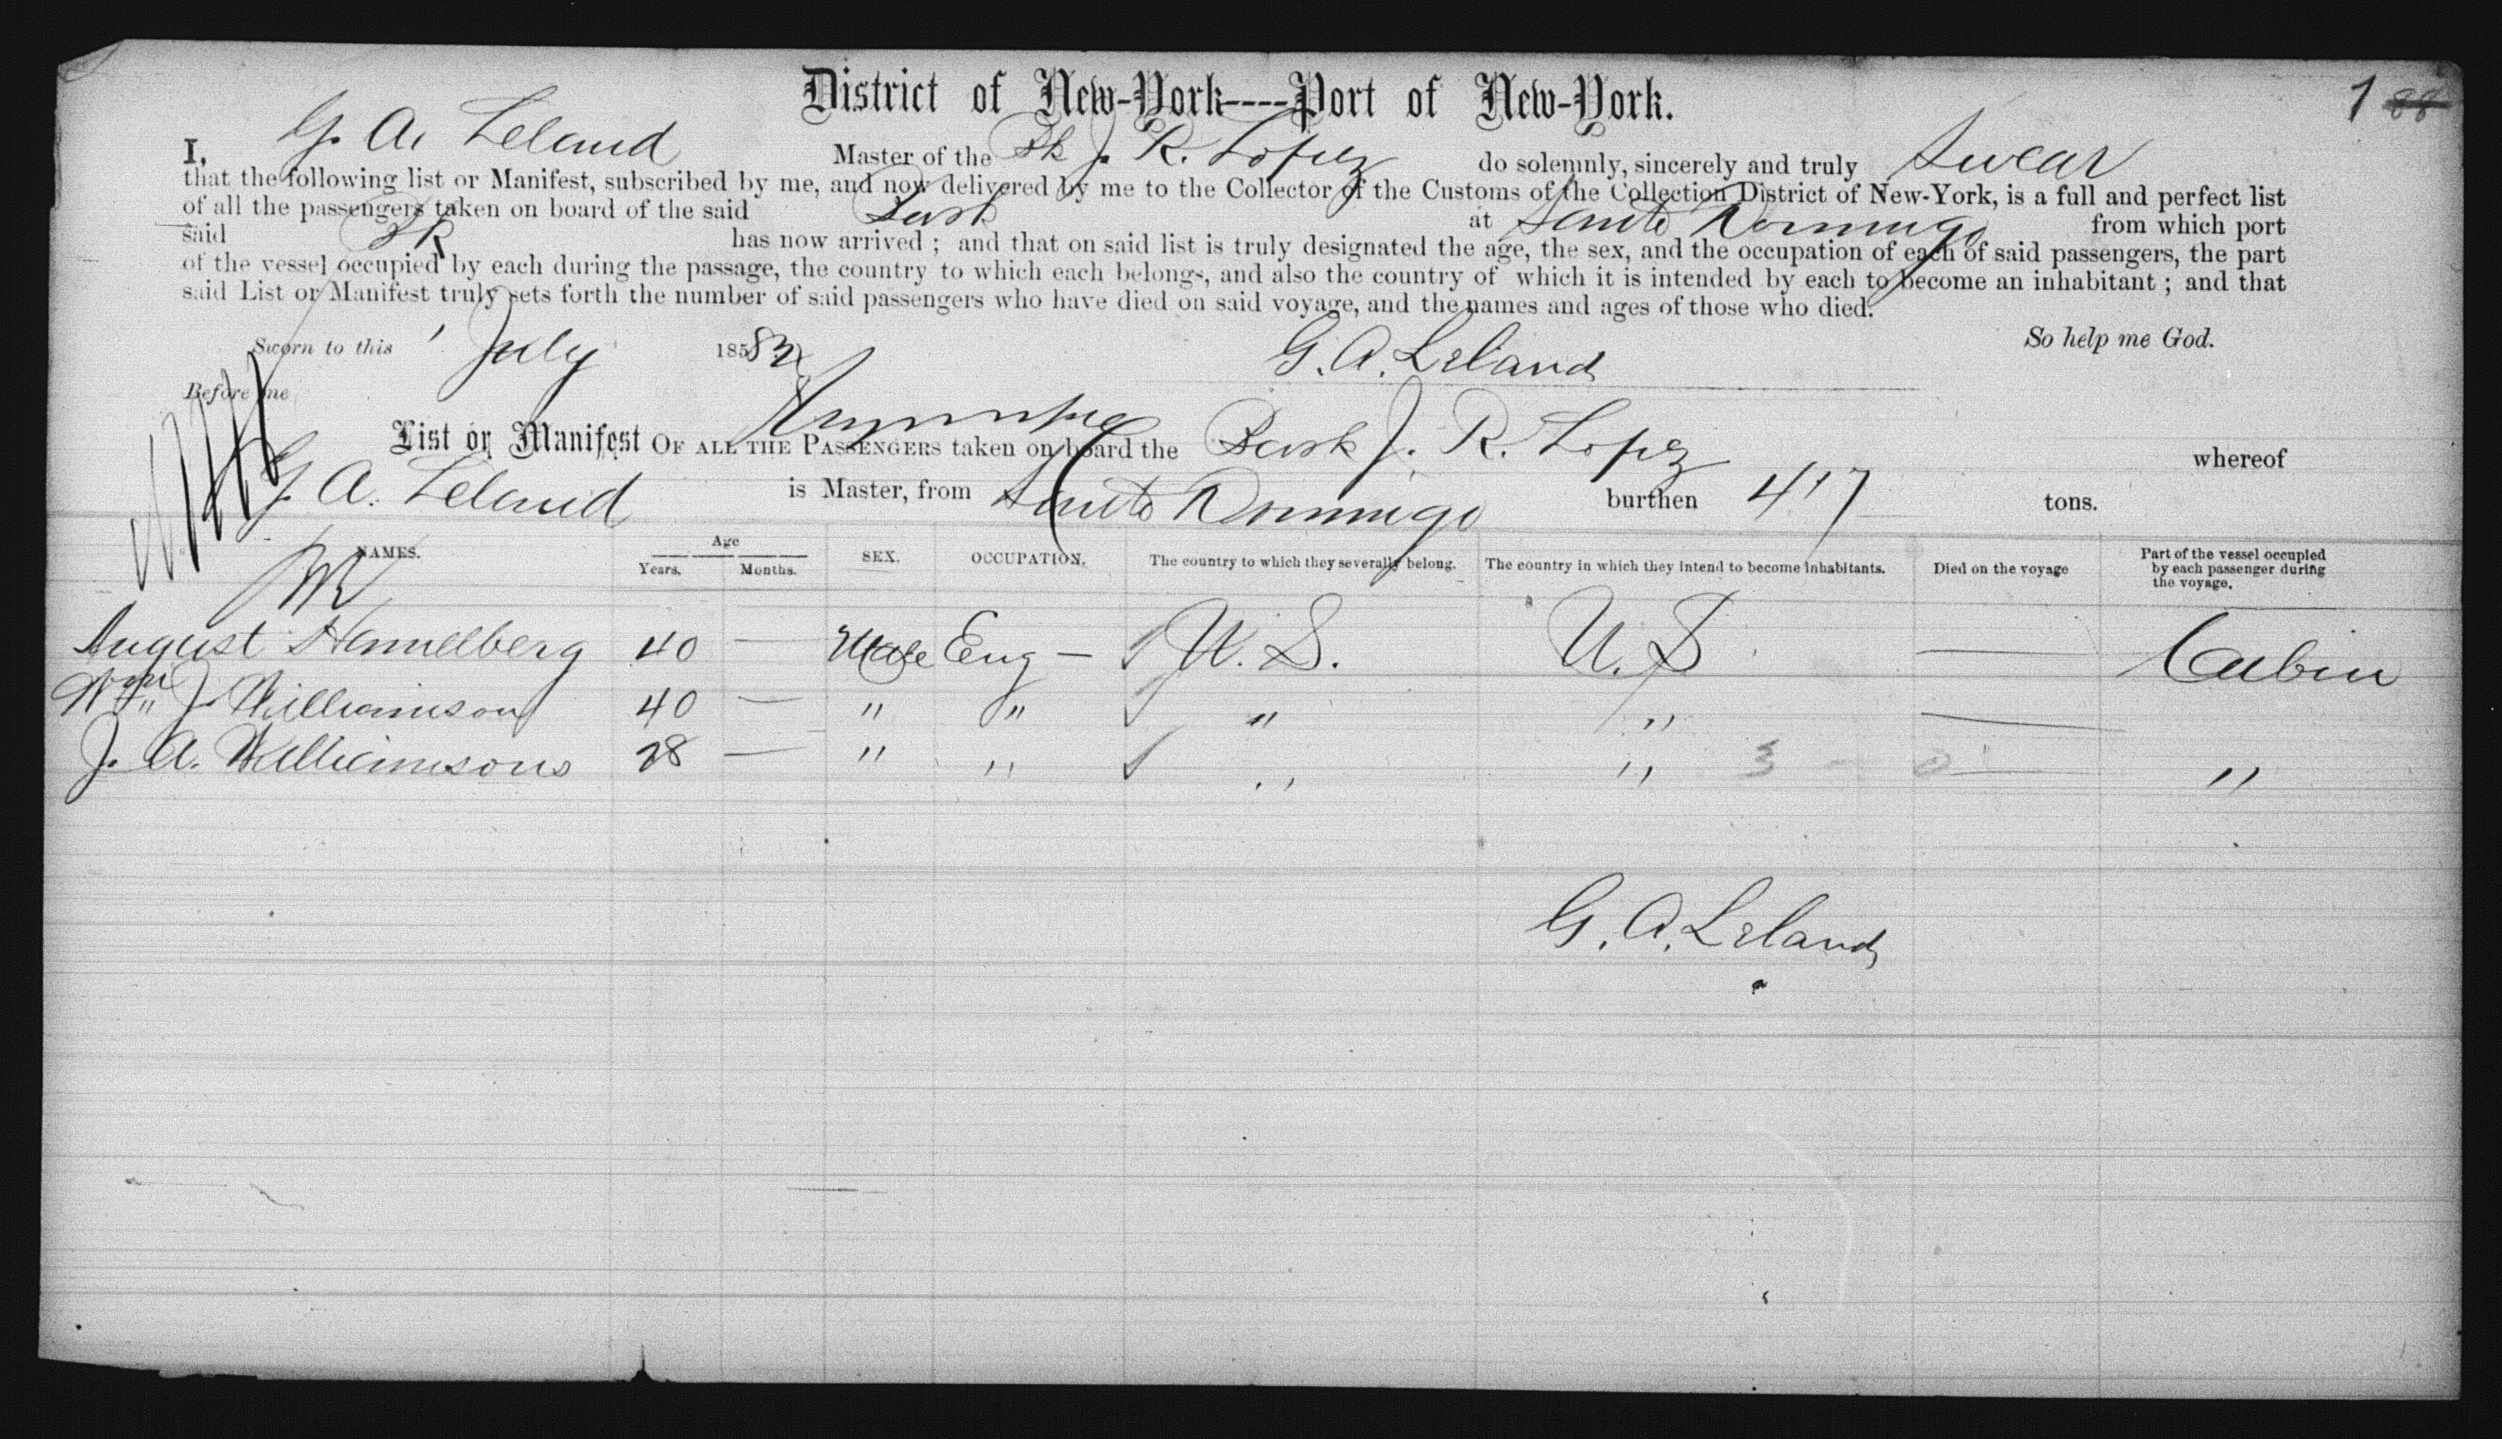 District of New-York----Port of New-York.
1 88
I, G. A. Leland Master of the Bk J. R. Lopez do solemnly, sincerely and truly Swear
that the following list or Manifest, subscribed by me, and now delivered by me to the Collector of the Customs of the Collection District of New-York, is a full and perfect list
of all the passengers taken on board of the said Bark at Santo Domingo from which port
said Bk has now arrived ; and that on said list is truly designated the age, the sex, and the occupation of each of said passengers, the part
of the vessel occupied by each during the passage, the country to which each belongs, and also the country of which it is intended by each to become an inhabitant ; and that
said List or Manifest truly sets forth the number of said passengers who have died on said voyage, and the names and ages of those who died.
So help me God.
Sworn to this 1 July 185 G. A. Leland
Before me
List or Manifest OF ALL THE PASSENGERS taken on board the Bark J. R. Lopez whereof
G. A. Leland is Master, from Santo Domingo burthen 417 tons.
NAMES. Age Years. Months. SEX. OCCUPATION. The country to which they severally belong. The country in which they intend to become inhabitants. Died on the voyage Part of the vessel occupied by each passenger during the voyage.
August 40 — Male Eng — U. S. U. S — Cabin
Wm J. Williamson 40 — " " " " —
J. A. Williamsons 28 — " " " " 3 — 0 — "
G. A. Leland